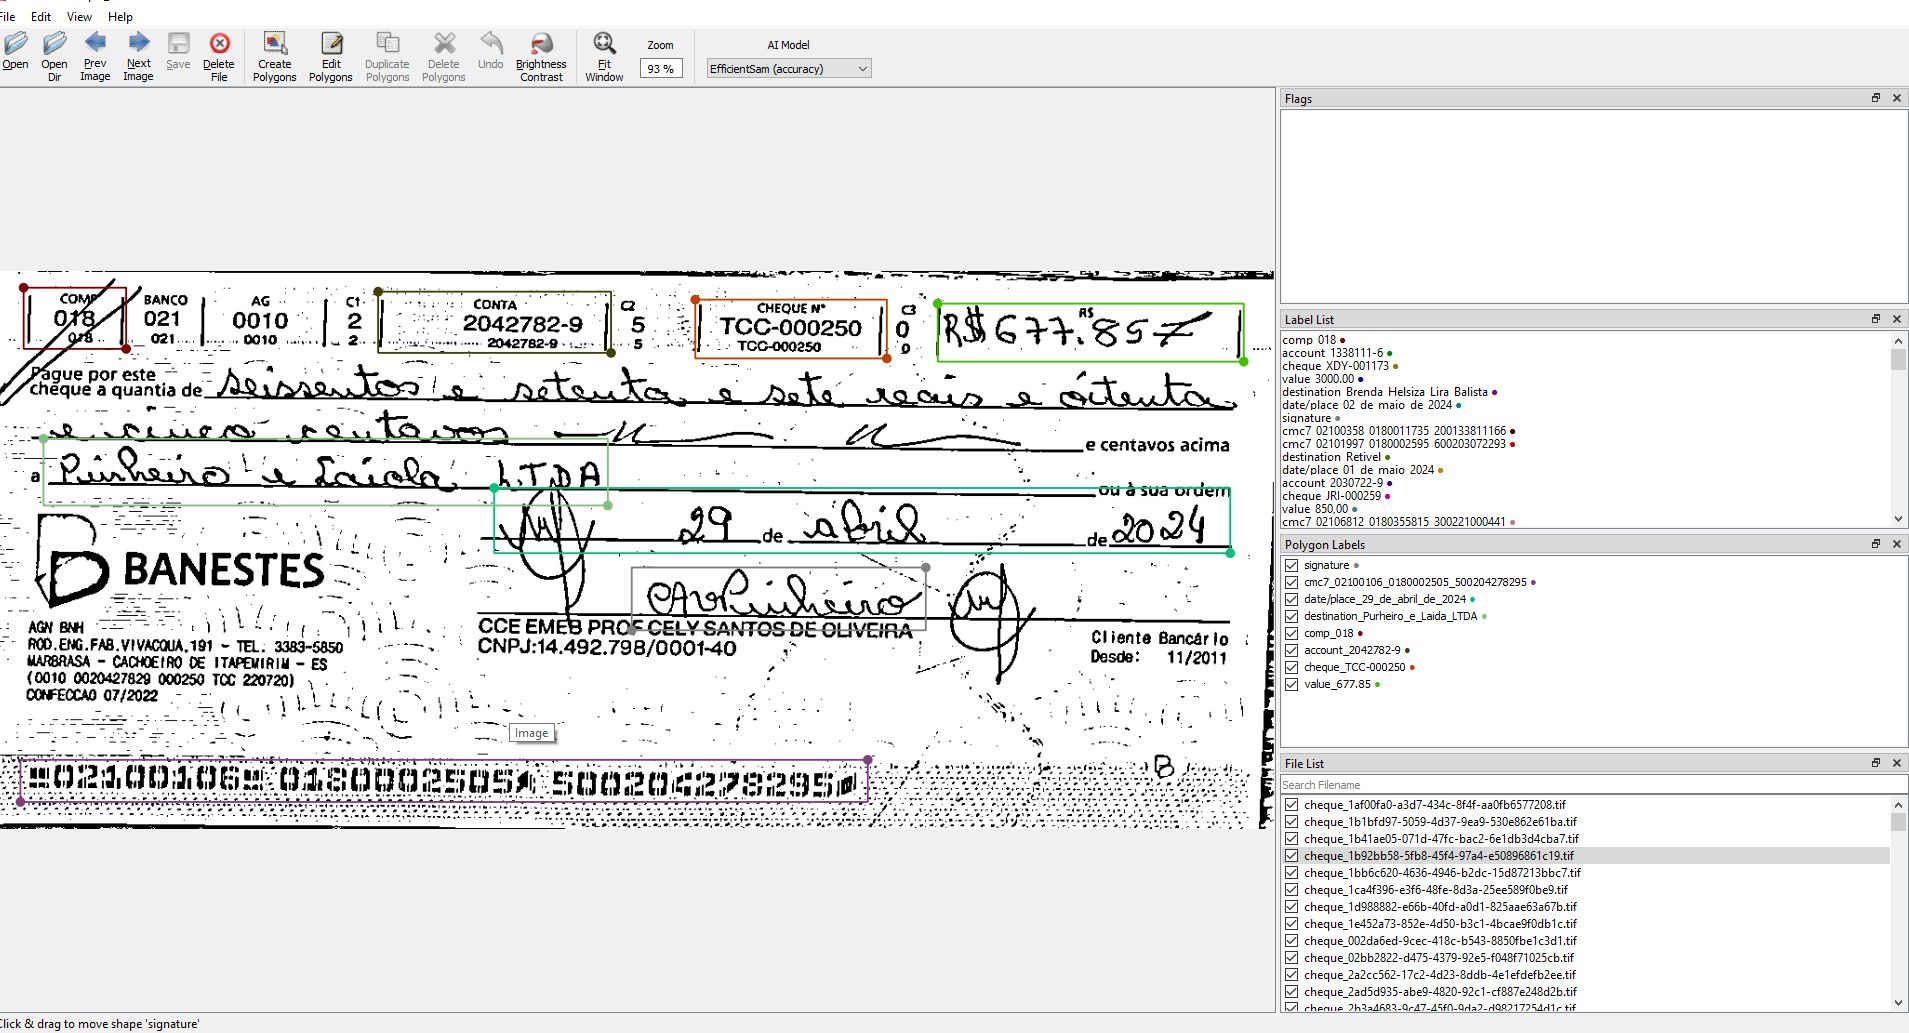 File Edit View Help
Open Open Dir Prev Image Next Image Save Delete File Create Polygons Edit Polygons Duplicate Polygons Delete Polygons Undo Brightness Contrast Fit Window Zoom 93 % AI Model EfficientSam (accuracy)
COMP BANCO AG C1 CONTA C2 CHEQUE Nº C3 R$
018 021 0010 2 2042782-9 5 TCC-000250 0 R$ 677.85
018 021 0010 2 2042782-9 5 TCC-000250 0
Pague por este
cheque a quantia de seissentos e setenta e sete reais e oitenta
e cinco centavos e centavos acima
a Pinheiro e Laiola LTDA
ou à sua ordem
29 de abril de 2024
BANESTES
CAvPinheiro
CCE EMEB PROF CELY SANTOS DE OLIVEIRA
CNPJ:14.492.798/0001-40
Cliente Bancário
Desde: 11/2011
AGN BNH
ROD.ENG.FAB.VIVACQUA,191 - TEL. 3383-5850
MARBRASA - CACHOEIRO DE ITAPEMIRIM - ES
(0010 0020427829 000250 TCC 220720)
CONFECCAO 07/2022
Image
B
02100106 0180002505 500204278295
Flags
Label List
comp 018
account 1338111-6
cheque XDY-001173
value 3000.00
destination Brenda Helsiza Lira Balista
date/place 02 de maio de 2024
signature
cmc7 02100358 0180011735 200133811166
cmc7 02101997 0180002595 600203072293
destination Retivel
date/place 01 de maio 2024
account 2030722-9
cheque JRI-000259
value 850,00
cmc7 02106812 0180355815 300221000441
Polygon Labels
signature
cmc7_02100106_0180002505_500204278295
date/place_29_de_abril_de_2024
destination_Purheiro_e_Laida_LTDA
comp_018
account_2042782-9
cheque_TCC-000250
value_677.85
File List
Search Filename
cheque_1af00fa0-a3d7-434c-8f4f-aa0fb6577208.tif
cheque_1b1bfd97-5059-4d37-9ea9-530e862e61ba.tif
cheque_1b41ae05-071d-47fc-bac2-6e1db3d4cba7.tif
cheque_1b92bb58-5fb8-45f4-97a4-e50896861c19.tif
cheque_1bb6c620-4636-4946-b2dc-15d87213bbc7.tif
cheque_1ca4f396-e3f6-48fe-8d3a-25ee589f0be9.tif
cheque_1d988882-e66b-40fd-a0d1-825aae63a67b.tif
cheque_1e452a73-852e-4d50-b3c1-4bcae9f0db1c.tif
cheque_002da6ed-9cec-418c-b543-8850fbe1c3d1.tif
cheque_02bb2822-d475-4379-92e5-f048f71025cb.tif
cheque_2a2cc562-17c2-4d23-8ddb-4e1efdefb2ee.tif
cheque_2ad5d935-abe9-4820-92c1-cf887e248d2b.tif
cheque_2b3a4683-9c47-45f0-9da2-d98217254d1c.tif
Click & drag to move shape 'signature'